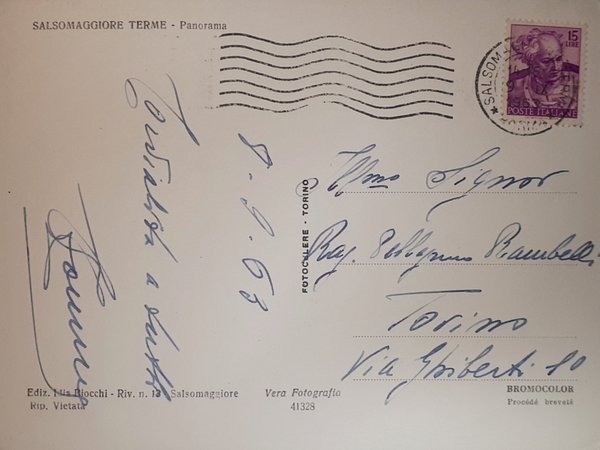 SALSOMAGGIORE TERME - Panorama
15
LIRE
POSTE ITALIANE
8.9.63
FOTOCELERE - TORINO
Ill.mo Signor
Rag. Pellegrino Rambelli
Torino
Via Ghiberti 10
Ediz. Biocchi - Riv. n. 13 - Salsomaggiore
Rip. Vietata
Vera Fotografia
41328
BROMOCOLOR
Procédé breveté